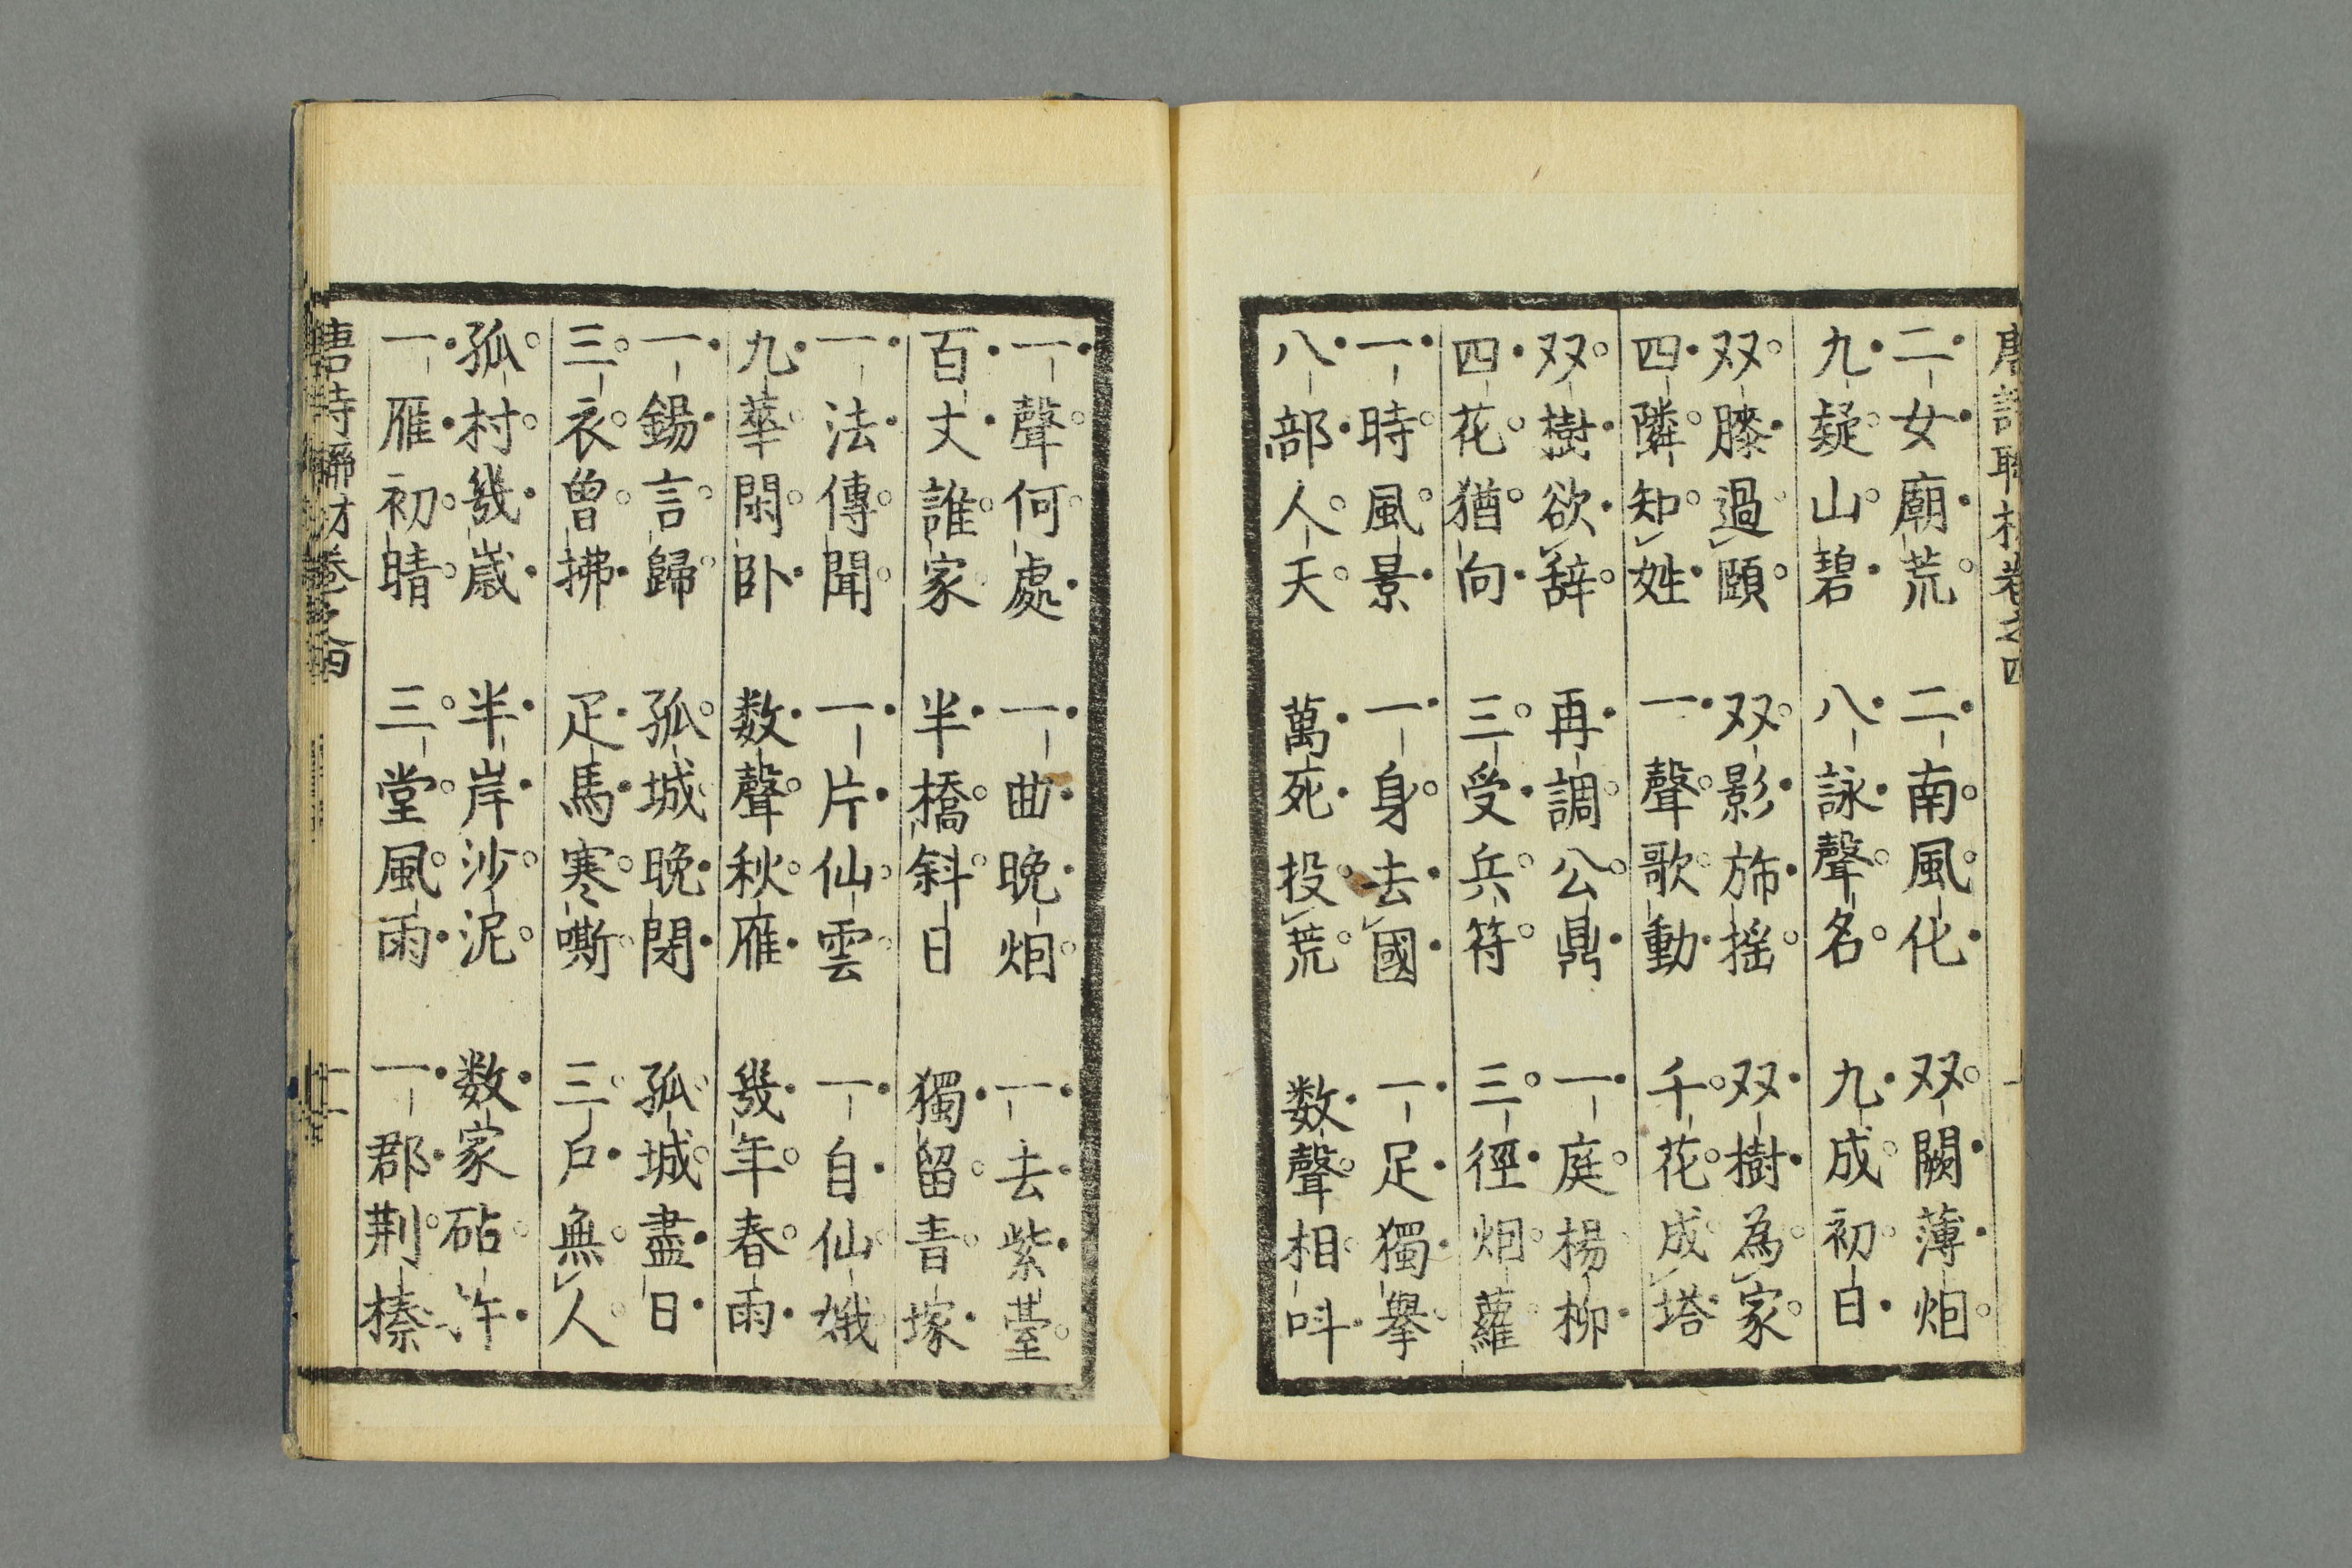 唐詩聯材卷之四
二女廟荒 二南風化 双闕薄烟
九疑山碧 八詠聲名 九成初日
双膝過頤 双影旆揺 双樹為家
四隣知姓 一聲歌動 千花成塔
双樹欲辞 再調公鼎 一庭楊柳
四花猶向 三受兵符 三徑烟蘿
一時風景 一身去國 一足獨擧
八部人天 萬死投荒 数聲相呌
一聲何處 一曲晩烟 一去紫臺
百丈誰家 半橋斜日 獨留青塚
一法傳聞 一片仙雲 一自仙娥
九華閑卧 数聲秋雁 幾年春雨
一錫言歸 孤城晩閉 孤城盡日
三衣曾拂 疋馬寒嘶 三戸無人
孤村幾歳 半岸沙泥 数家砧杵
一雁初晴 三堂風雨 一郡荆榛
唐詩聯材卷之四 十一